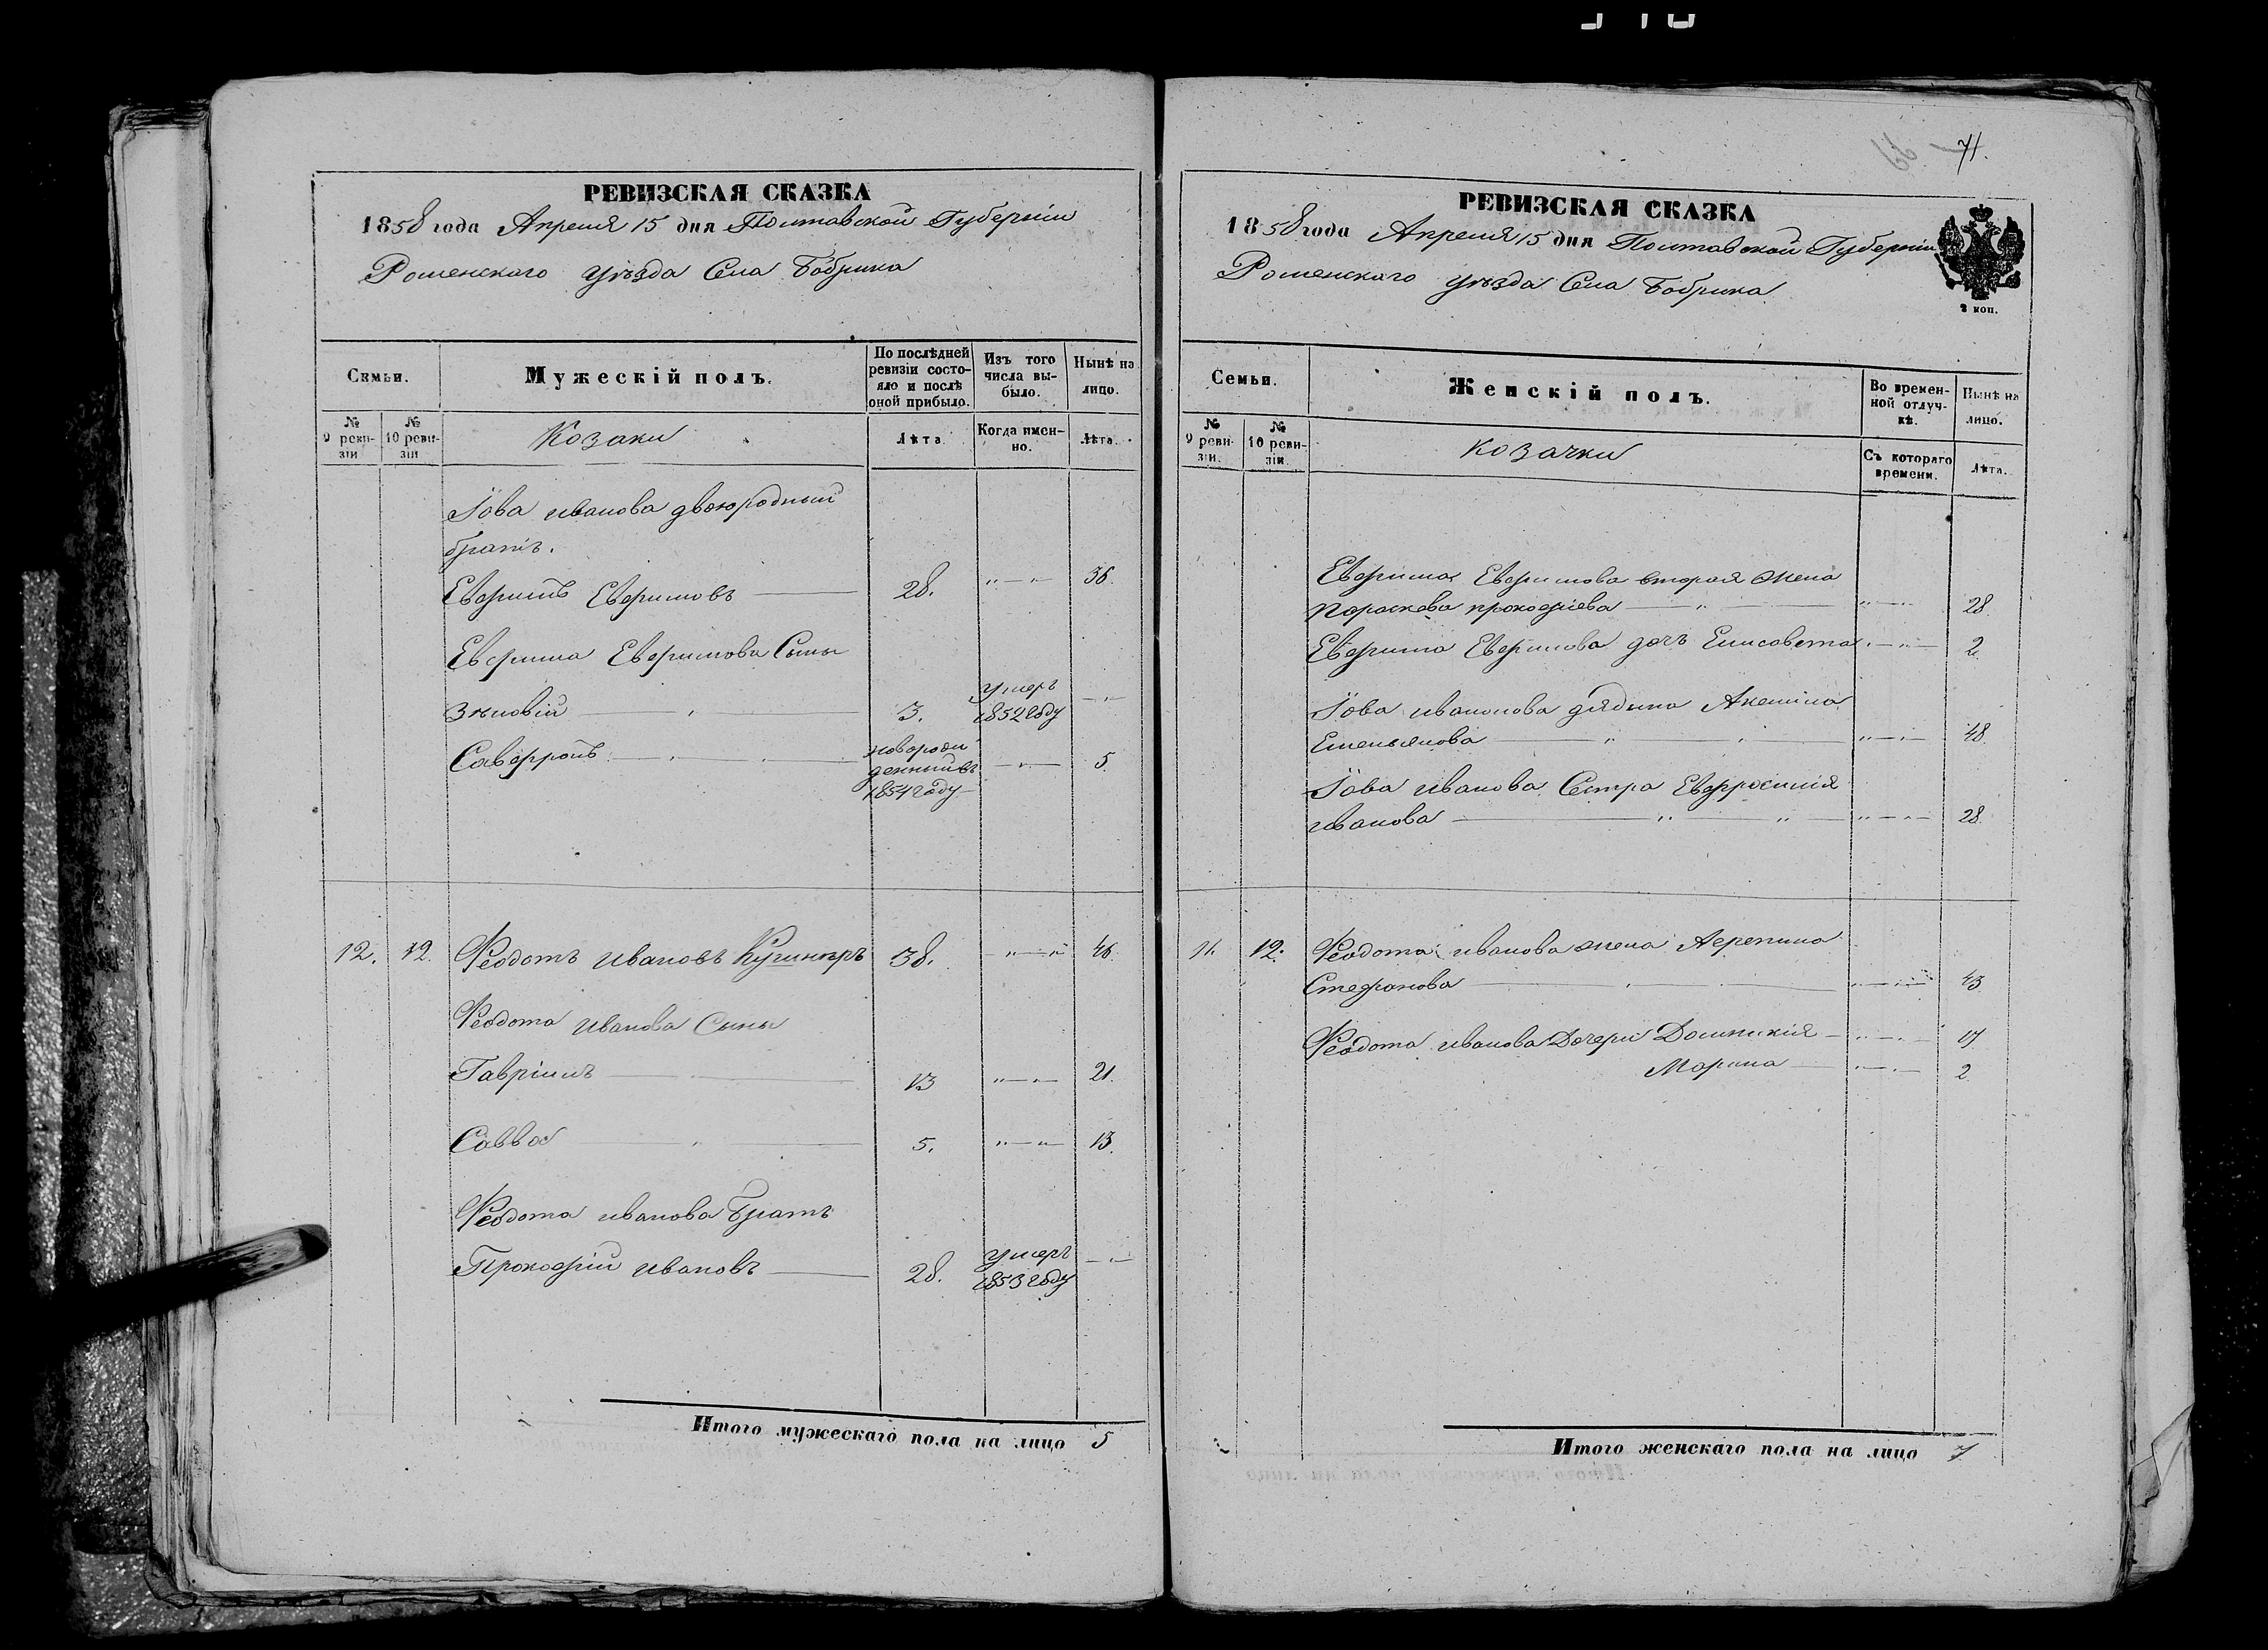 66 71.
РЕВИЗСКАЯ СКАЗКА
1858 года Апреля 15 дня Полтавской Губернiи
Роменскаго уѣзда Села Бобрика
Семьи.
Мужескiй полъ.
По послѣдней ревизiи состояло и послѣ оной прибыло.
Изъ того числа выбыло.
Нынѣ на лицо.
№ 9 ревизiи
№ 10 ревизiи
Козаки
Лѣта
Когда именно.
Лѣта.
Iова иванова двоюродный
братъ.
Евфимъ Евфимовъ 28. 36.
Евфима Евфимова Сыны
Зѣновiй 3. умеръ 1852 году
Савфронъ новорожденный въ 1854 году 5
12. 12. Феодотъ ивановъ Кушниръ 38. 46
Феодота иванова Сыны
Гаврiилъ 13 21.
Савва 5. 13.
Феодота иванова Братъ
Прокофiй ивановъ 28. умеръ 1853 году
Итого мужескаго пола на лицо 5
РЕВИЗСКАЯ СКАЗКА
1858 года Апреля 15 дня Полтавской Губернiи
Роменскаго уѣзда Села Бобрика
2 коп.
Семьи.
Женскiй полъ.
Во временной отлучкѣ.
Нынѣ на лицо.
№ 9 ревизiи.
№ 10 ревизiи.
козачки
Съ котораго времени.
Лѣта.
Евфима Евфимова вторая жена
Параскева прокофiева 28
Евфима Евфимова дочь Елисавета 2
Iова иванова дядина Акилина
Емельянова 48
Iова иванова Сестра Евфросинiя
иванова 28
12. Феодота иванова жена Агрепина
Стефанова 43
Феодота иванова Дочери Домникiя 17
Марина 2
Итого женскаго пола на лицо 7